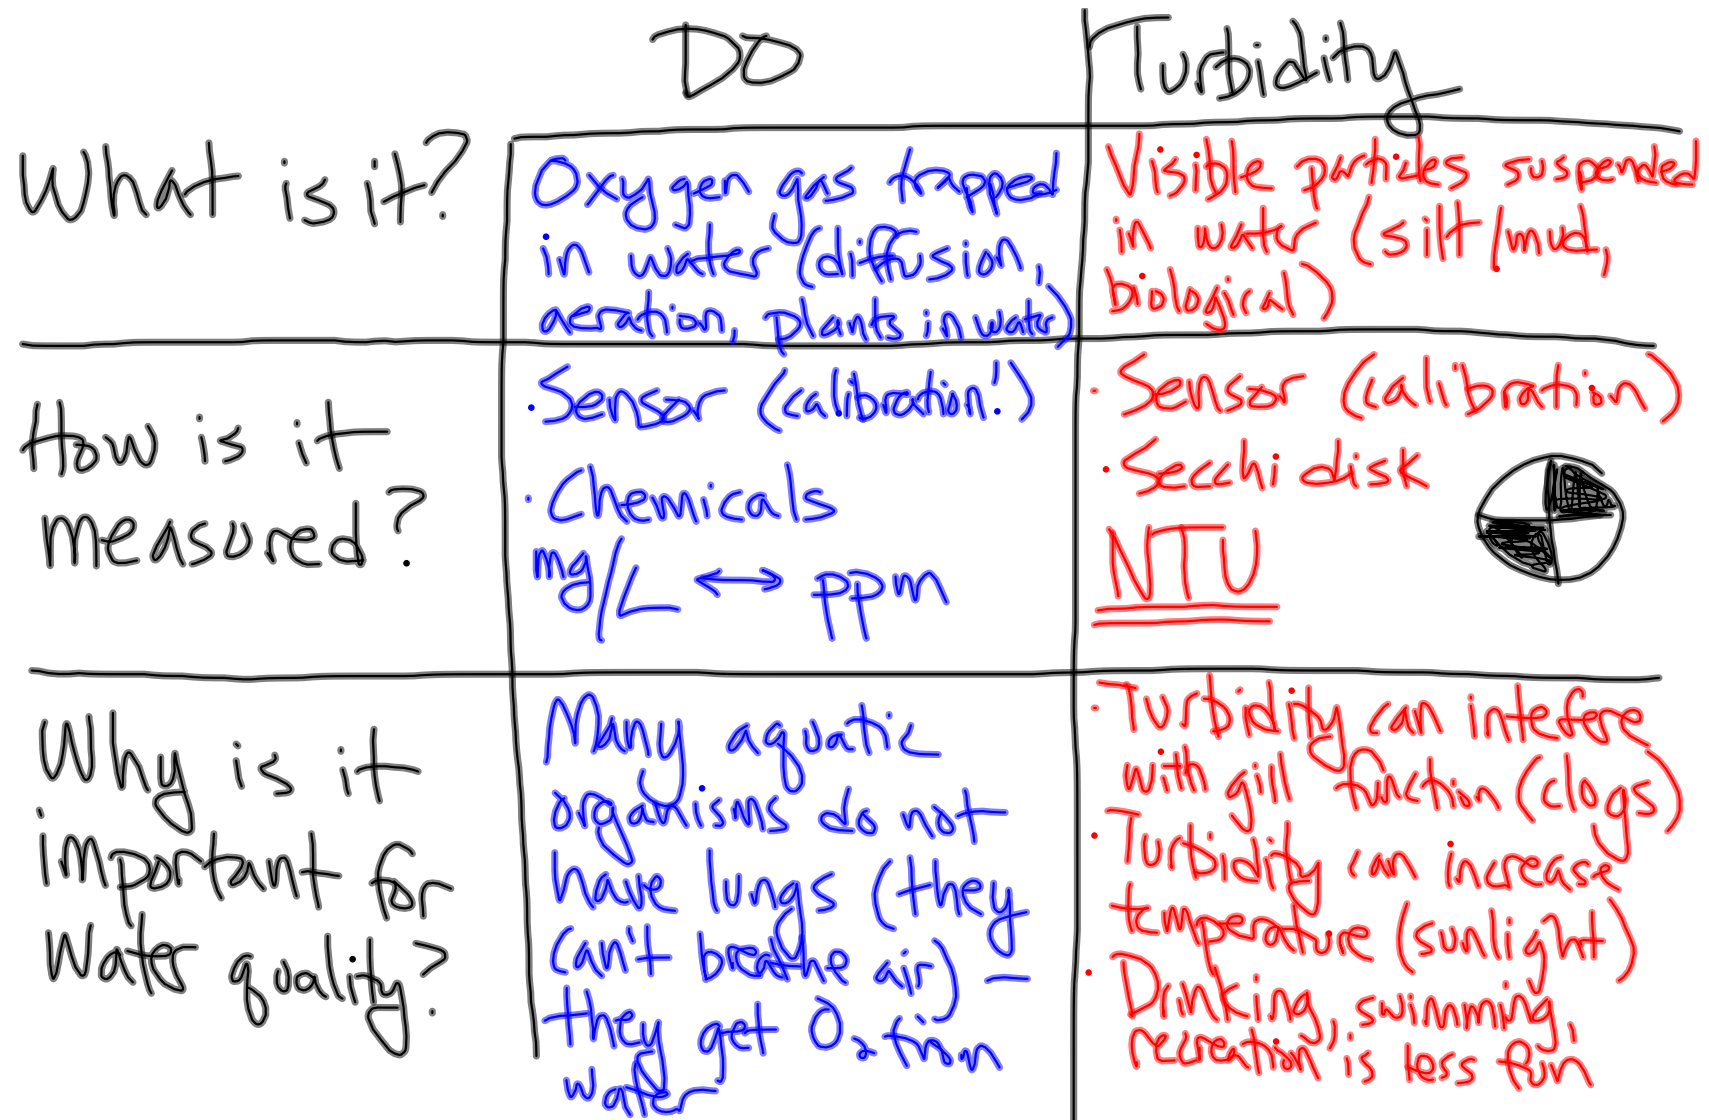 DO
Turbidity
What is it?
Oxygen gas trapped
in water (diffusion,
aeration, plants in water)
Visible particles suspended
in water (silt/mud,
biological)
How is it
measured?
· Sensor (calibration!)
· Chemicals
mg/L ↔ ppm
· Sensor (calibration)
· Secchi disk
NTU
Why is it
important for
water quality?
Many aquatic
organisms do not
have lungs (they
can't breathe air) –
they get O₂ from
water
· Turbidity can intefere
with gill function (clogs)
· Turbidity can increase
temperature (sunlight)
· Drinking, swimming,
recreation is less fun